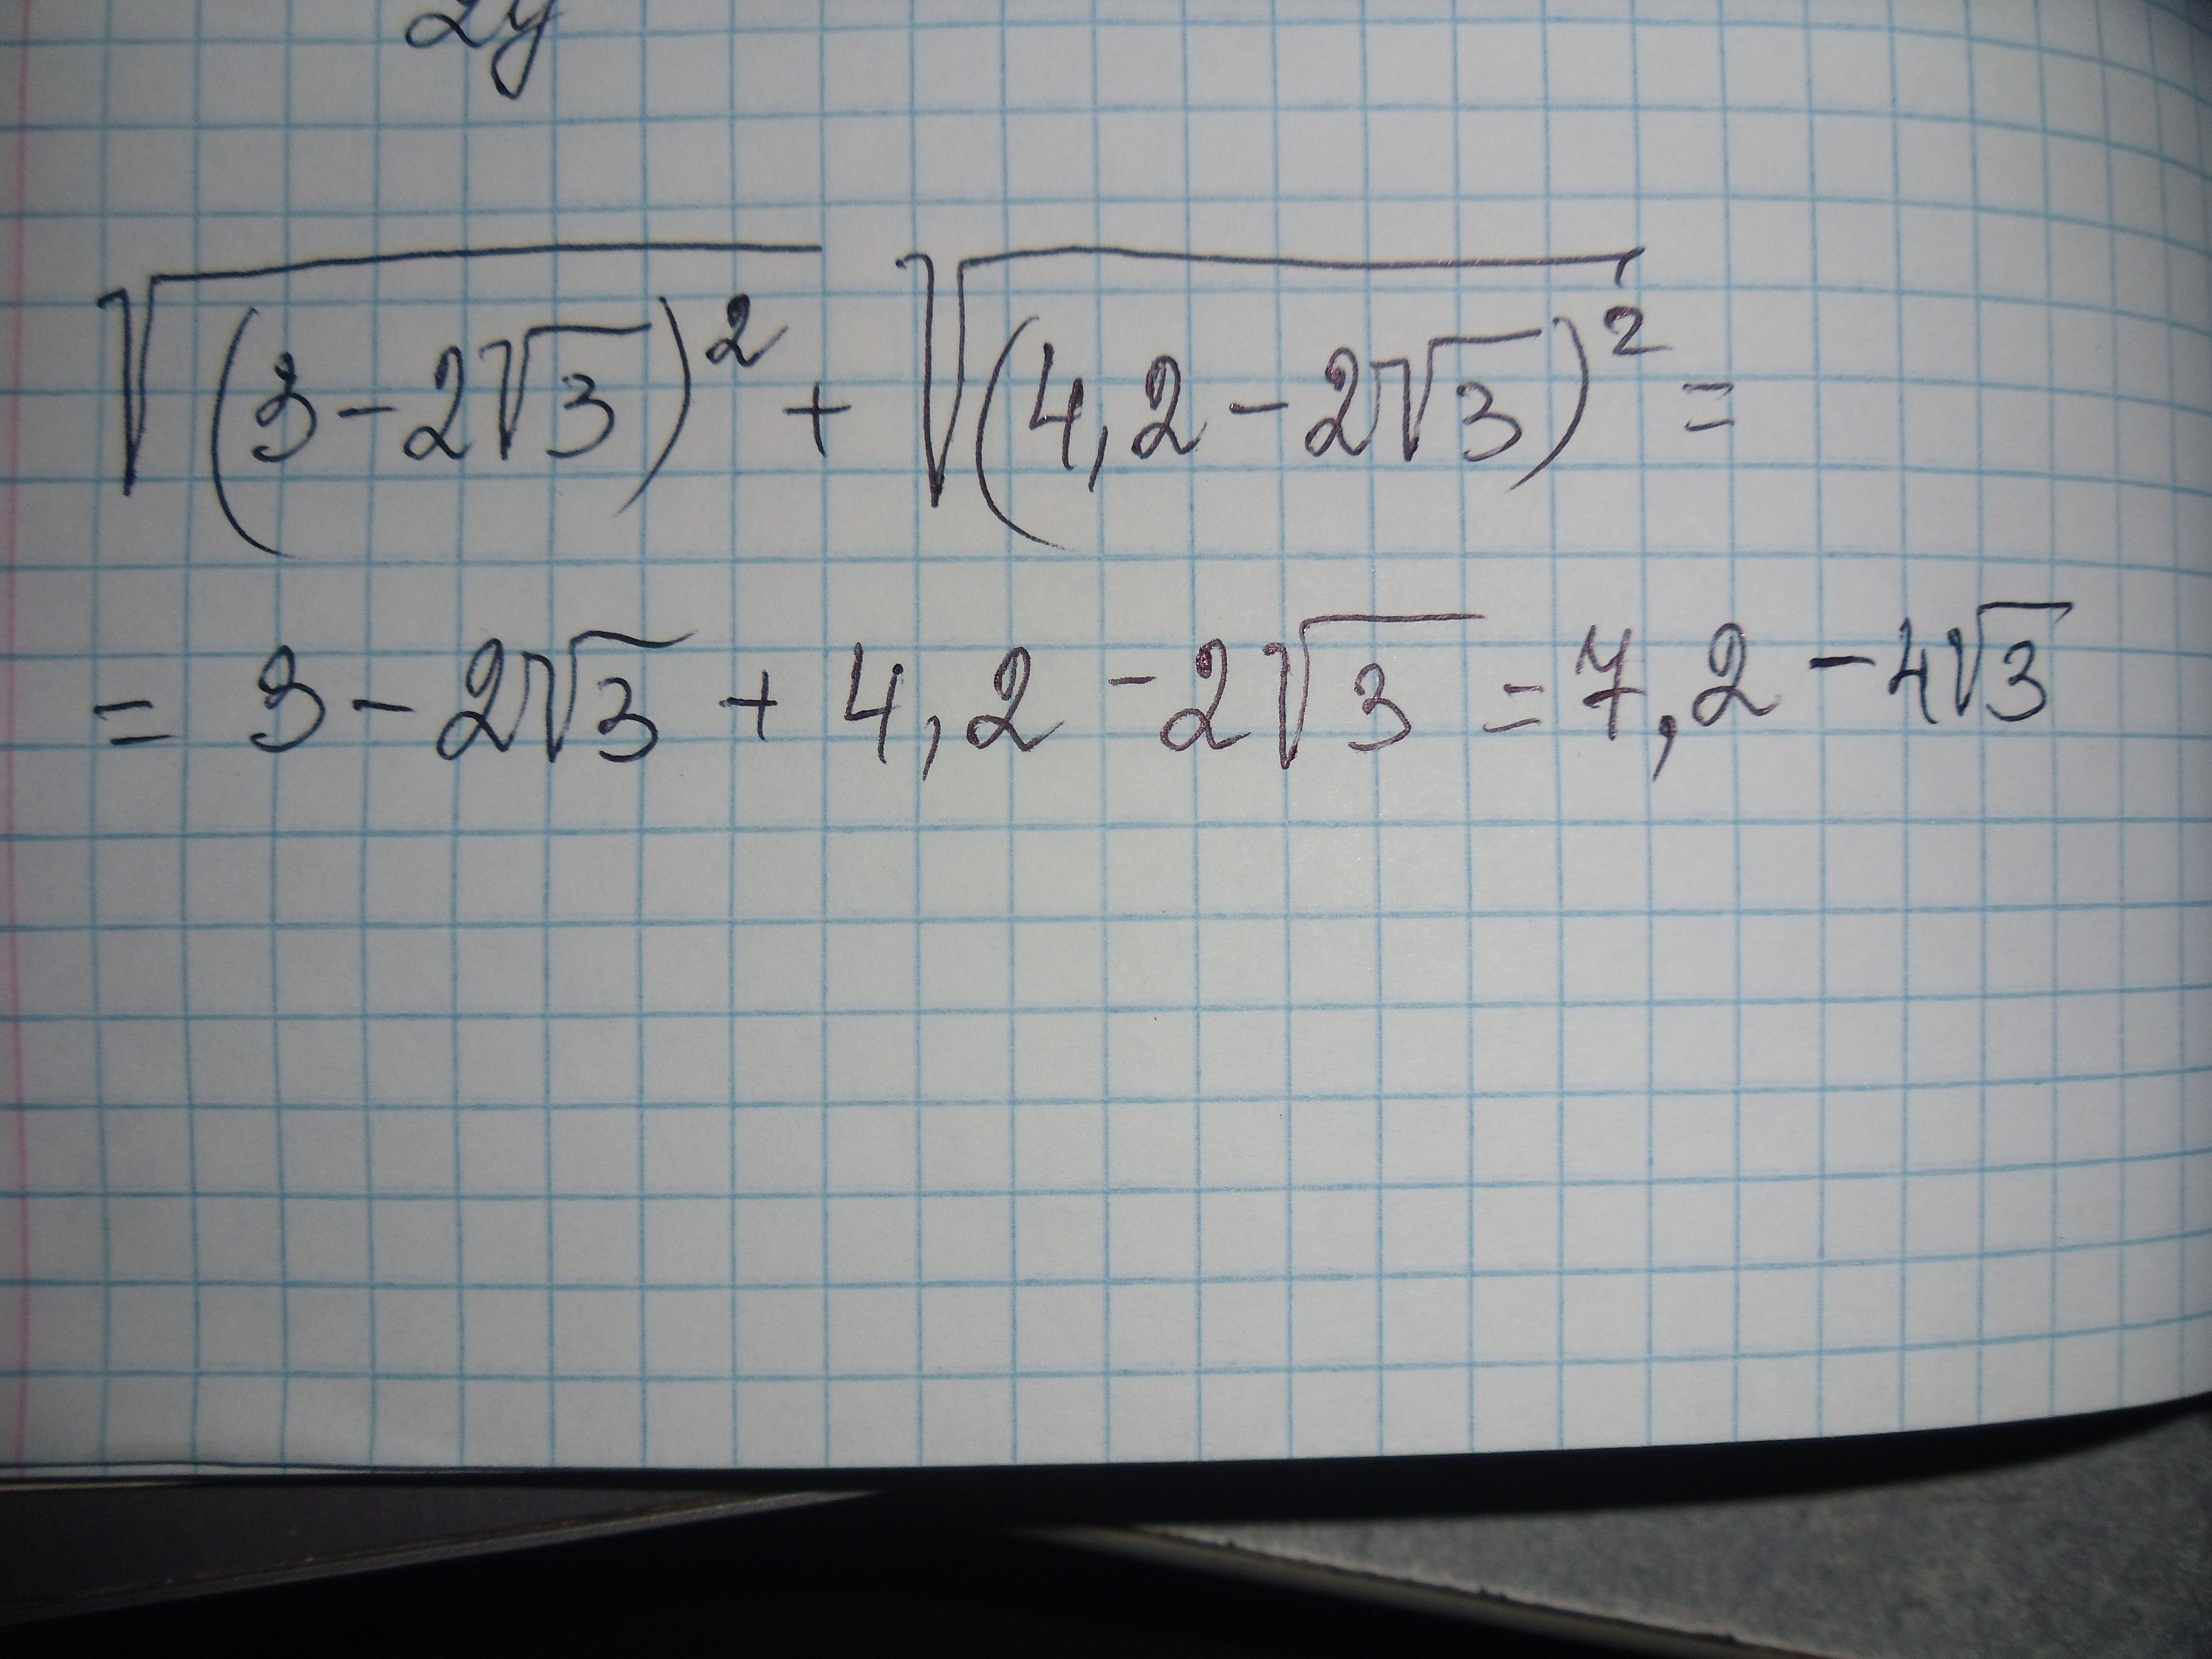 2y
√(3-2√3)² + √(4,2-2√3)² =
= 3-2√3 + 4,2 -2√3 = 7,2 - 4√3